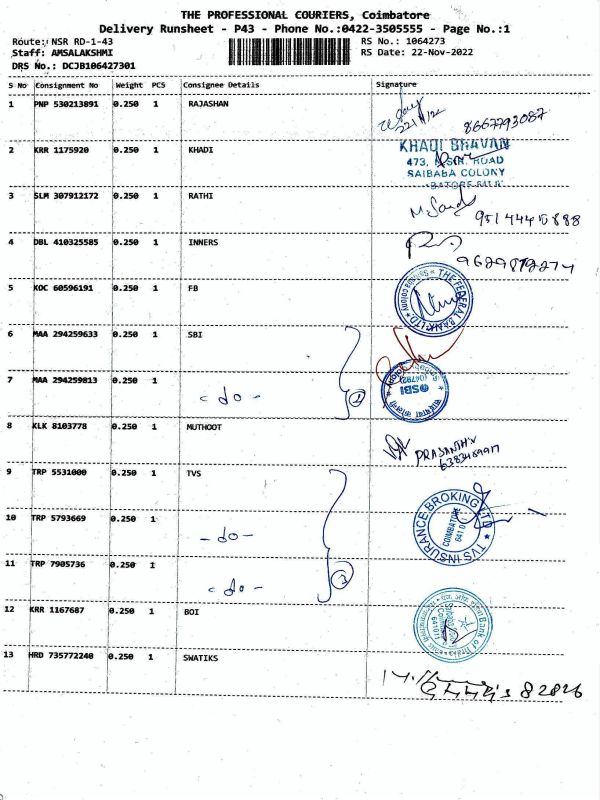 THE PROFESSIONAL COURIERS, Coimbatore
Delivery Runsheet - P43 - Phone No.:0422-3505555 - Page No.:1
Route: NSR RD-1-43
RS No.: 1064273
Staff: AMSALAKSHMI
RS Date: 22-Nov-2022
DRS No.: DCJB106427301
S No Consignment No Weight PCS Consignee Details Signature
1 PNP 530213891 0.250 1 RAJASHAN
22/11/22 8667793087
2 KRR 1175920 0.250 1 KHADI
KHADI BHAVAN
473, ROAD
SAIBABA COLONY
3 SLM 307912172 0.250 1 RATHI
4 DBL 410325585 0.250 1 INNERS
5 KOC 60596191 0.250 1 FB
THE FEDERAL BANK LTD
6 MAA 294259633 0.250 1 SBI
7 MAA 294259813 0.250 1
- do -
SBI
8 KLK 8103778 0.250 1 MUTHOOT
9 TRP 5531000 0.250 1 TVS
10 TRP 5793669 0.250 1
- do -
TVS INSURANCE BROKING LTD
COIMBATORE
11 TRP 7905736 0.250 1
- do -
12 KRR 1167687 0.250 1 BOI
Bank of India
13 HRD 735772240 0.250 1 SWATIKS